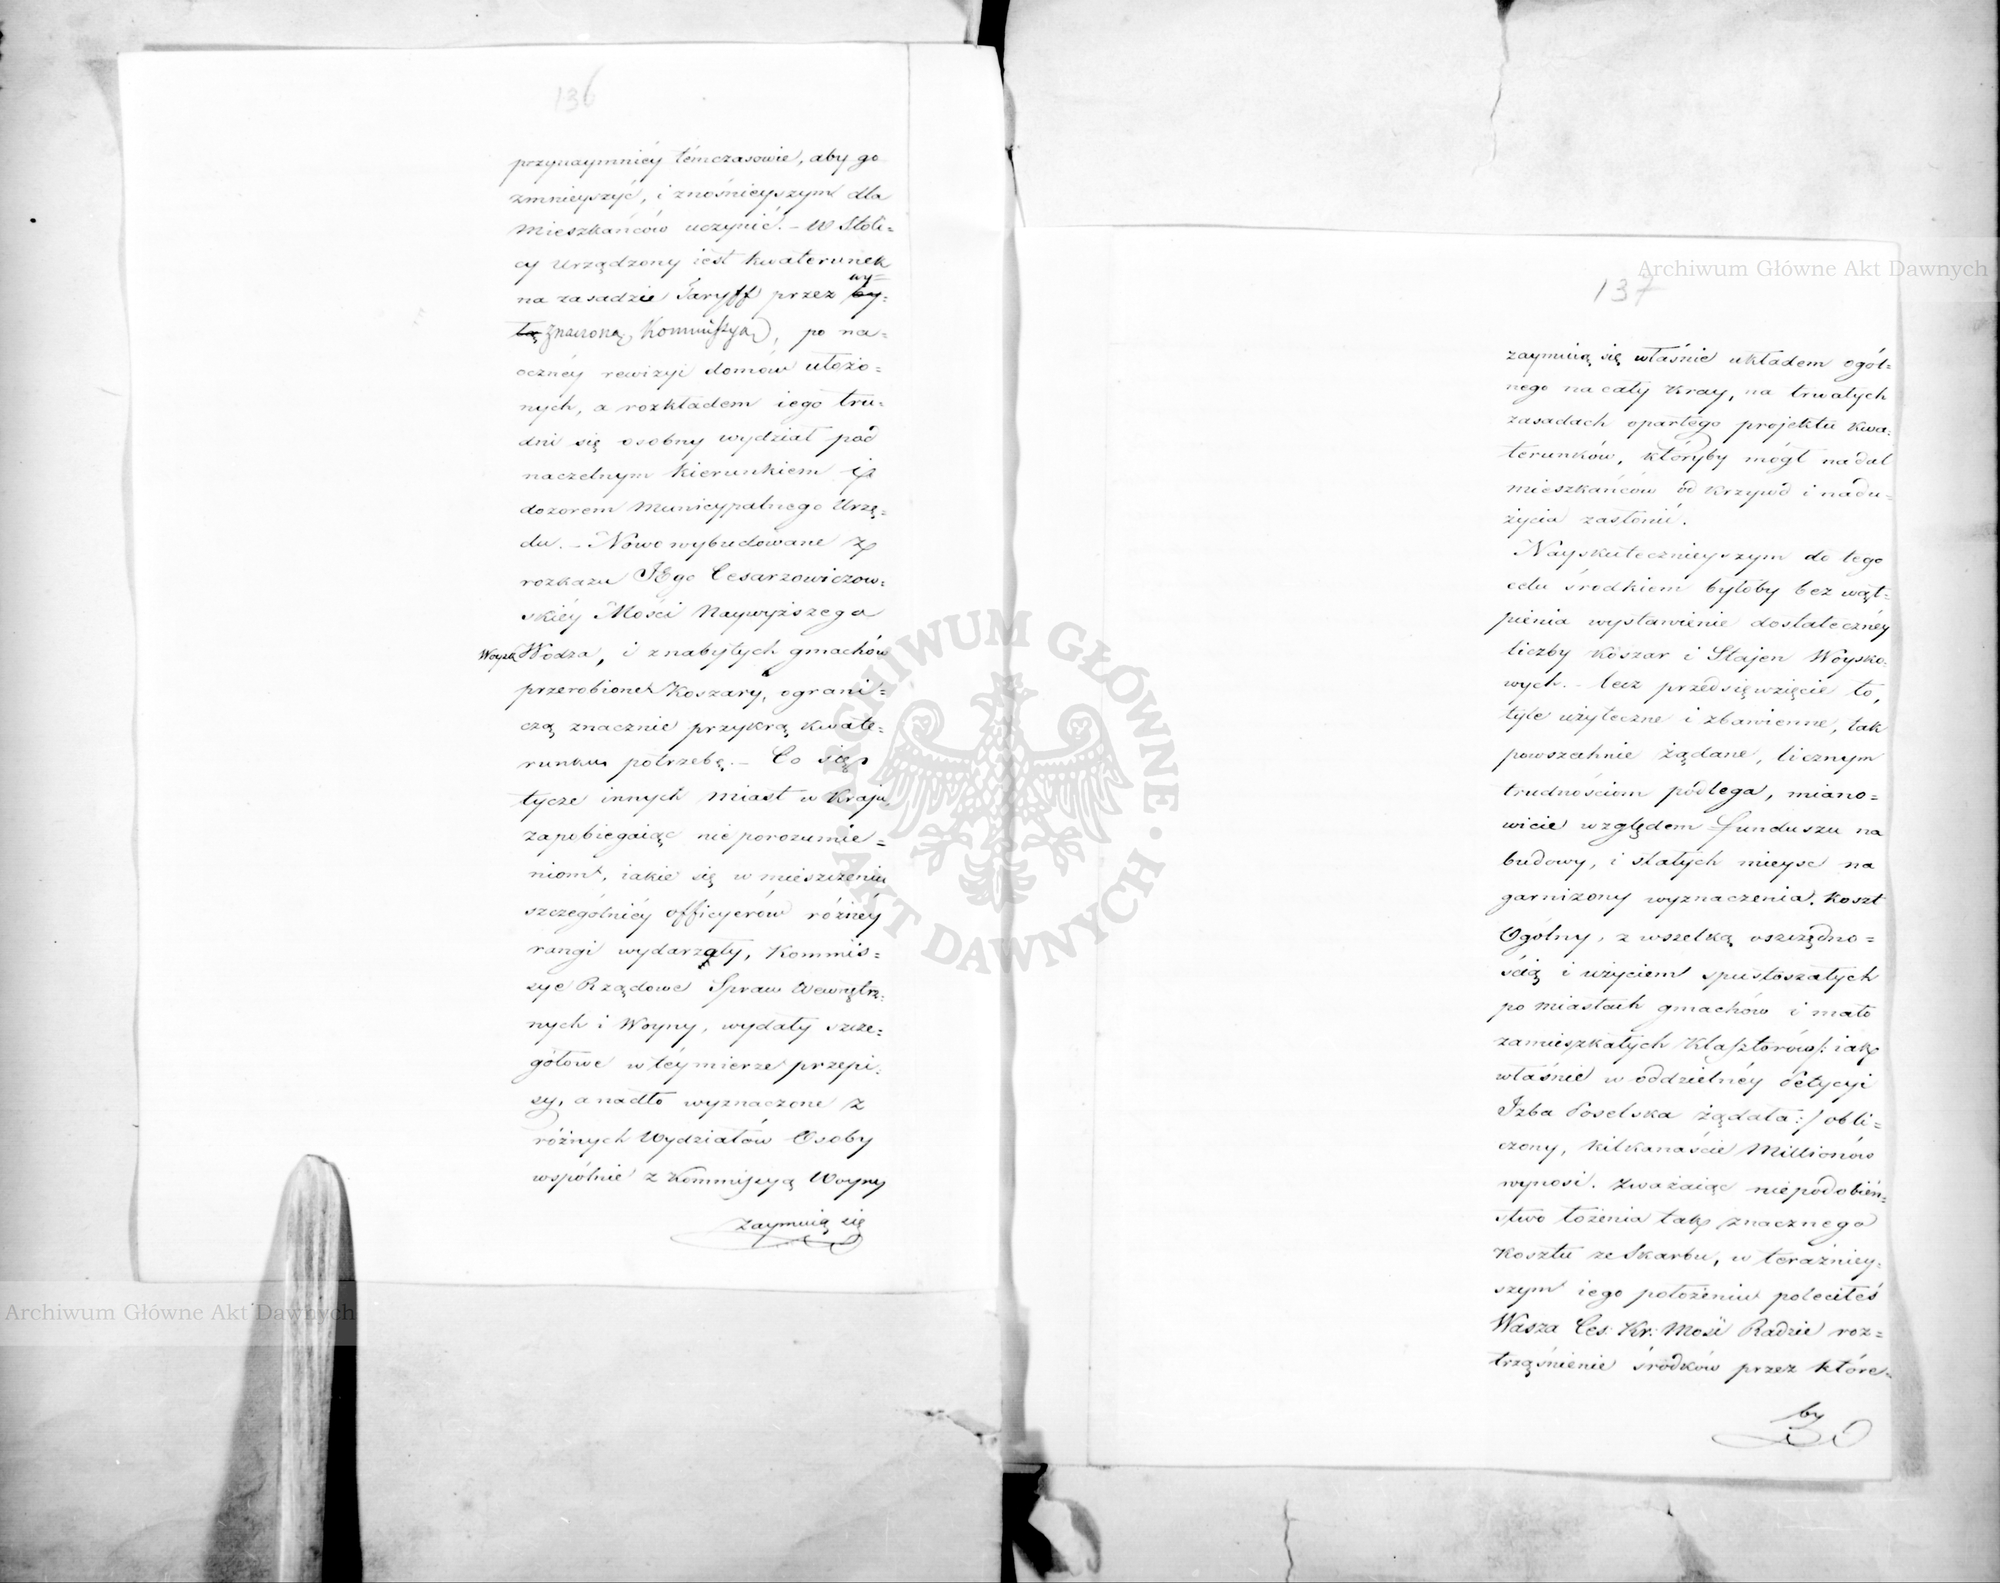 136
przynaymniéy témczasowie, aby go
zmnieyszyć, i znośnieyszym dla
Mieszkańców uczynić. – W Stoli=
cy Urządzony iest kwaterunek
na zasadzie Taryff przez wy=
znaczoną Kommissyą, po na=
oczney rewizyi domów ułożo=
nych, a rozkładem iego tru=
dni się osobny wydział pod
naczelnym kierunkiem i
dozorem Municypalnego Urzę=
du. – Nowo wybudowane z
rozkazu JEgo Cesarzowiczow=
skiéy Mości Naywyższego
Wodza, i z nabytych gmachów
przerobione Koszary, ograni=
czą znacznie przykrą kwate=
runku potrzebę. – Co się
tycze innych Miast w Kraju,
zapobiegaiąc nieporozumie=
niom, iakie się w mieszczeniu
szczególniéy officyerów różnéy
rangi wydarzały, Kommis=
sye Rządowe Spraw Wewnętrz=
nych i Woyny, wydały szcze=
gółowe w téy mierze przepi=
sy, a nadto wyznaczone z
różnych Wydziałów Osoby
wspólnie z Kommissyą Woyny
zaymuią się
137
zaymuią się właśnie układem ogól=
nego na cały Kray, na trwałych
zasadach opartego projektu kwa=
terunków, któryby mógł nadal
mieszkańców od krzywd i nadu=
życia zasłonić.
Nayskutecznieyszym do tego
celu środkiem byłoby bez wąt=
pienia wystawienie dostatecznéy
liczby Koszar i Stajen Woysko=
wych. – lecz przedsięwzięcie to,
tyle użyteczne i zbawienne, tak
powszechnie żądane, licznym
trudnościom podlega, miano=
wicie względem funduszu na
budowy, i stałych mieysc na
garnizony wyznaczenia. Koszt
Ogólny, z wszelką oszczędno=
ścią i użyciem spustoszałych
po miastach gmachów i mało
zamieszkałych Klasztorów /: iak
właśnie w oddzielnéy Petycyi
Izba Poselska żądała :/ obli=
czony, kilkanaście Millionów
wynosi. Zważaiąc niepodobień=
stwo łożenia tak znacznego
Kosztu ze Skarbu, w teraźniey=
szym iego położeniu poleciłeś
Wasza Ces: Kr: Mość Radzie roz=
trząśnienie środków przez które=
by
Archiwum Główne Akt Dawnych
Archiwum Główne Akt Dawnych
ARCHIWUM GŁÓWNE
AKT DAWNYCH